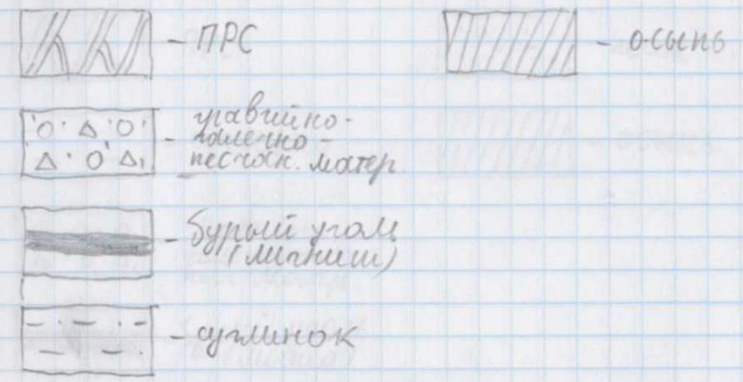 - ПРС
- осыпь
гравийно-
- галечно-
песчан. матер.
- бурый уголь
(лигнит)
- суглинок